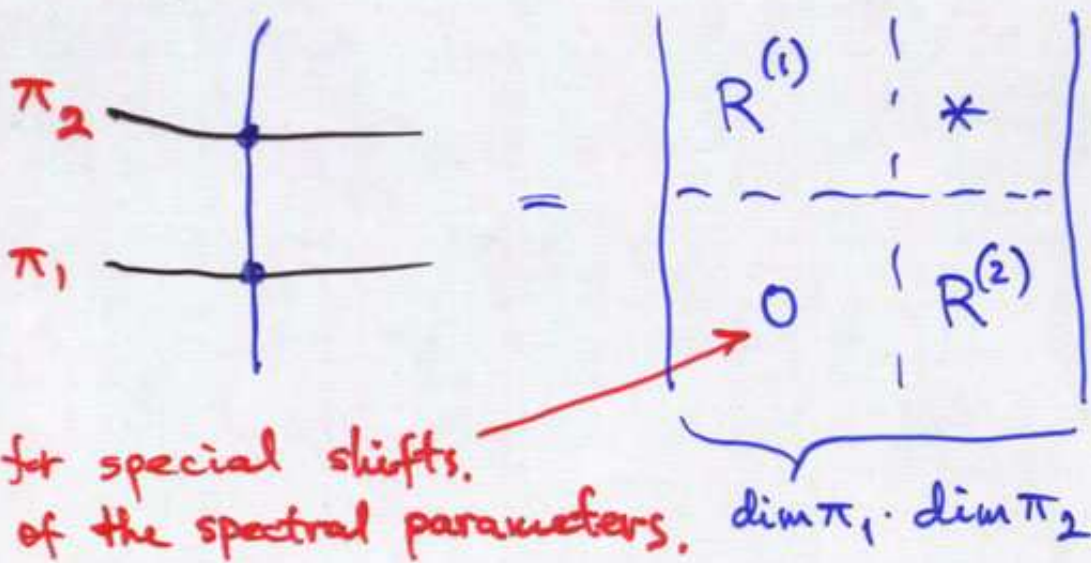 π₂
π₁
=
R⁽¹⁾ *
0 R⁽²⁾
for special shifts.
of the spectral parameters.
dim π₁ · dim π₂